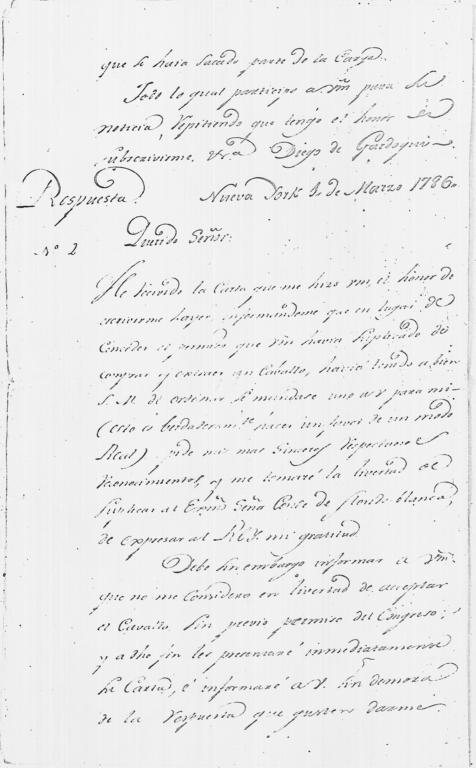 que se havia sacado parte de la Carga.
Todo lo qual participo a Vm para su
noticia, repitiendo que tengo el honor de
subscrivirme, &ra Diego de Gardoqui
Respuesta. Nueva York 1o de Marzo 1786.
No 2 Querido Señor:
He recivido la Carta que me hizo vm, el honor de
escrivirme hayer, informandome que en lugar de
Conceder el permiso que vm havia suplicado de
comprar y extraer un Caballo, havia tenido a bien
S. M. de ordenar se mandase uno a V para mi
(esto es berdaderamte hacer un favor de un modo
Real) pide mis mas sinceros respectuosos
reconocimientos, y me tomaré la livertad de
suplicar al Exmo Señor Conde de florida blanca,
de expresar al REY mi gratitud
Debo sin embargo informar a Vm.
que no me considero en livertad de acceptar
el Cavallo sin previo permiso del Congreso;
y a dho fin les presentaré inmediatamente
la Carta, é informaré a V. sin demora
de la respuesta que gusten darme.